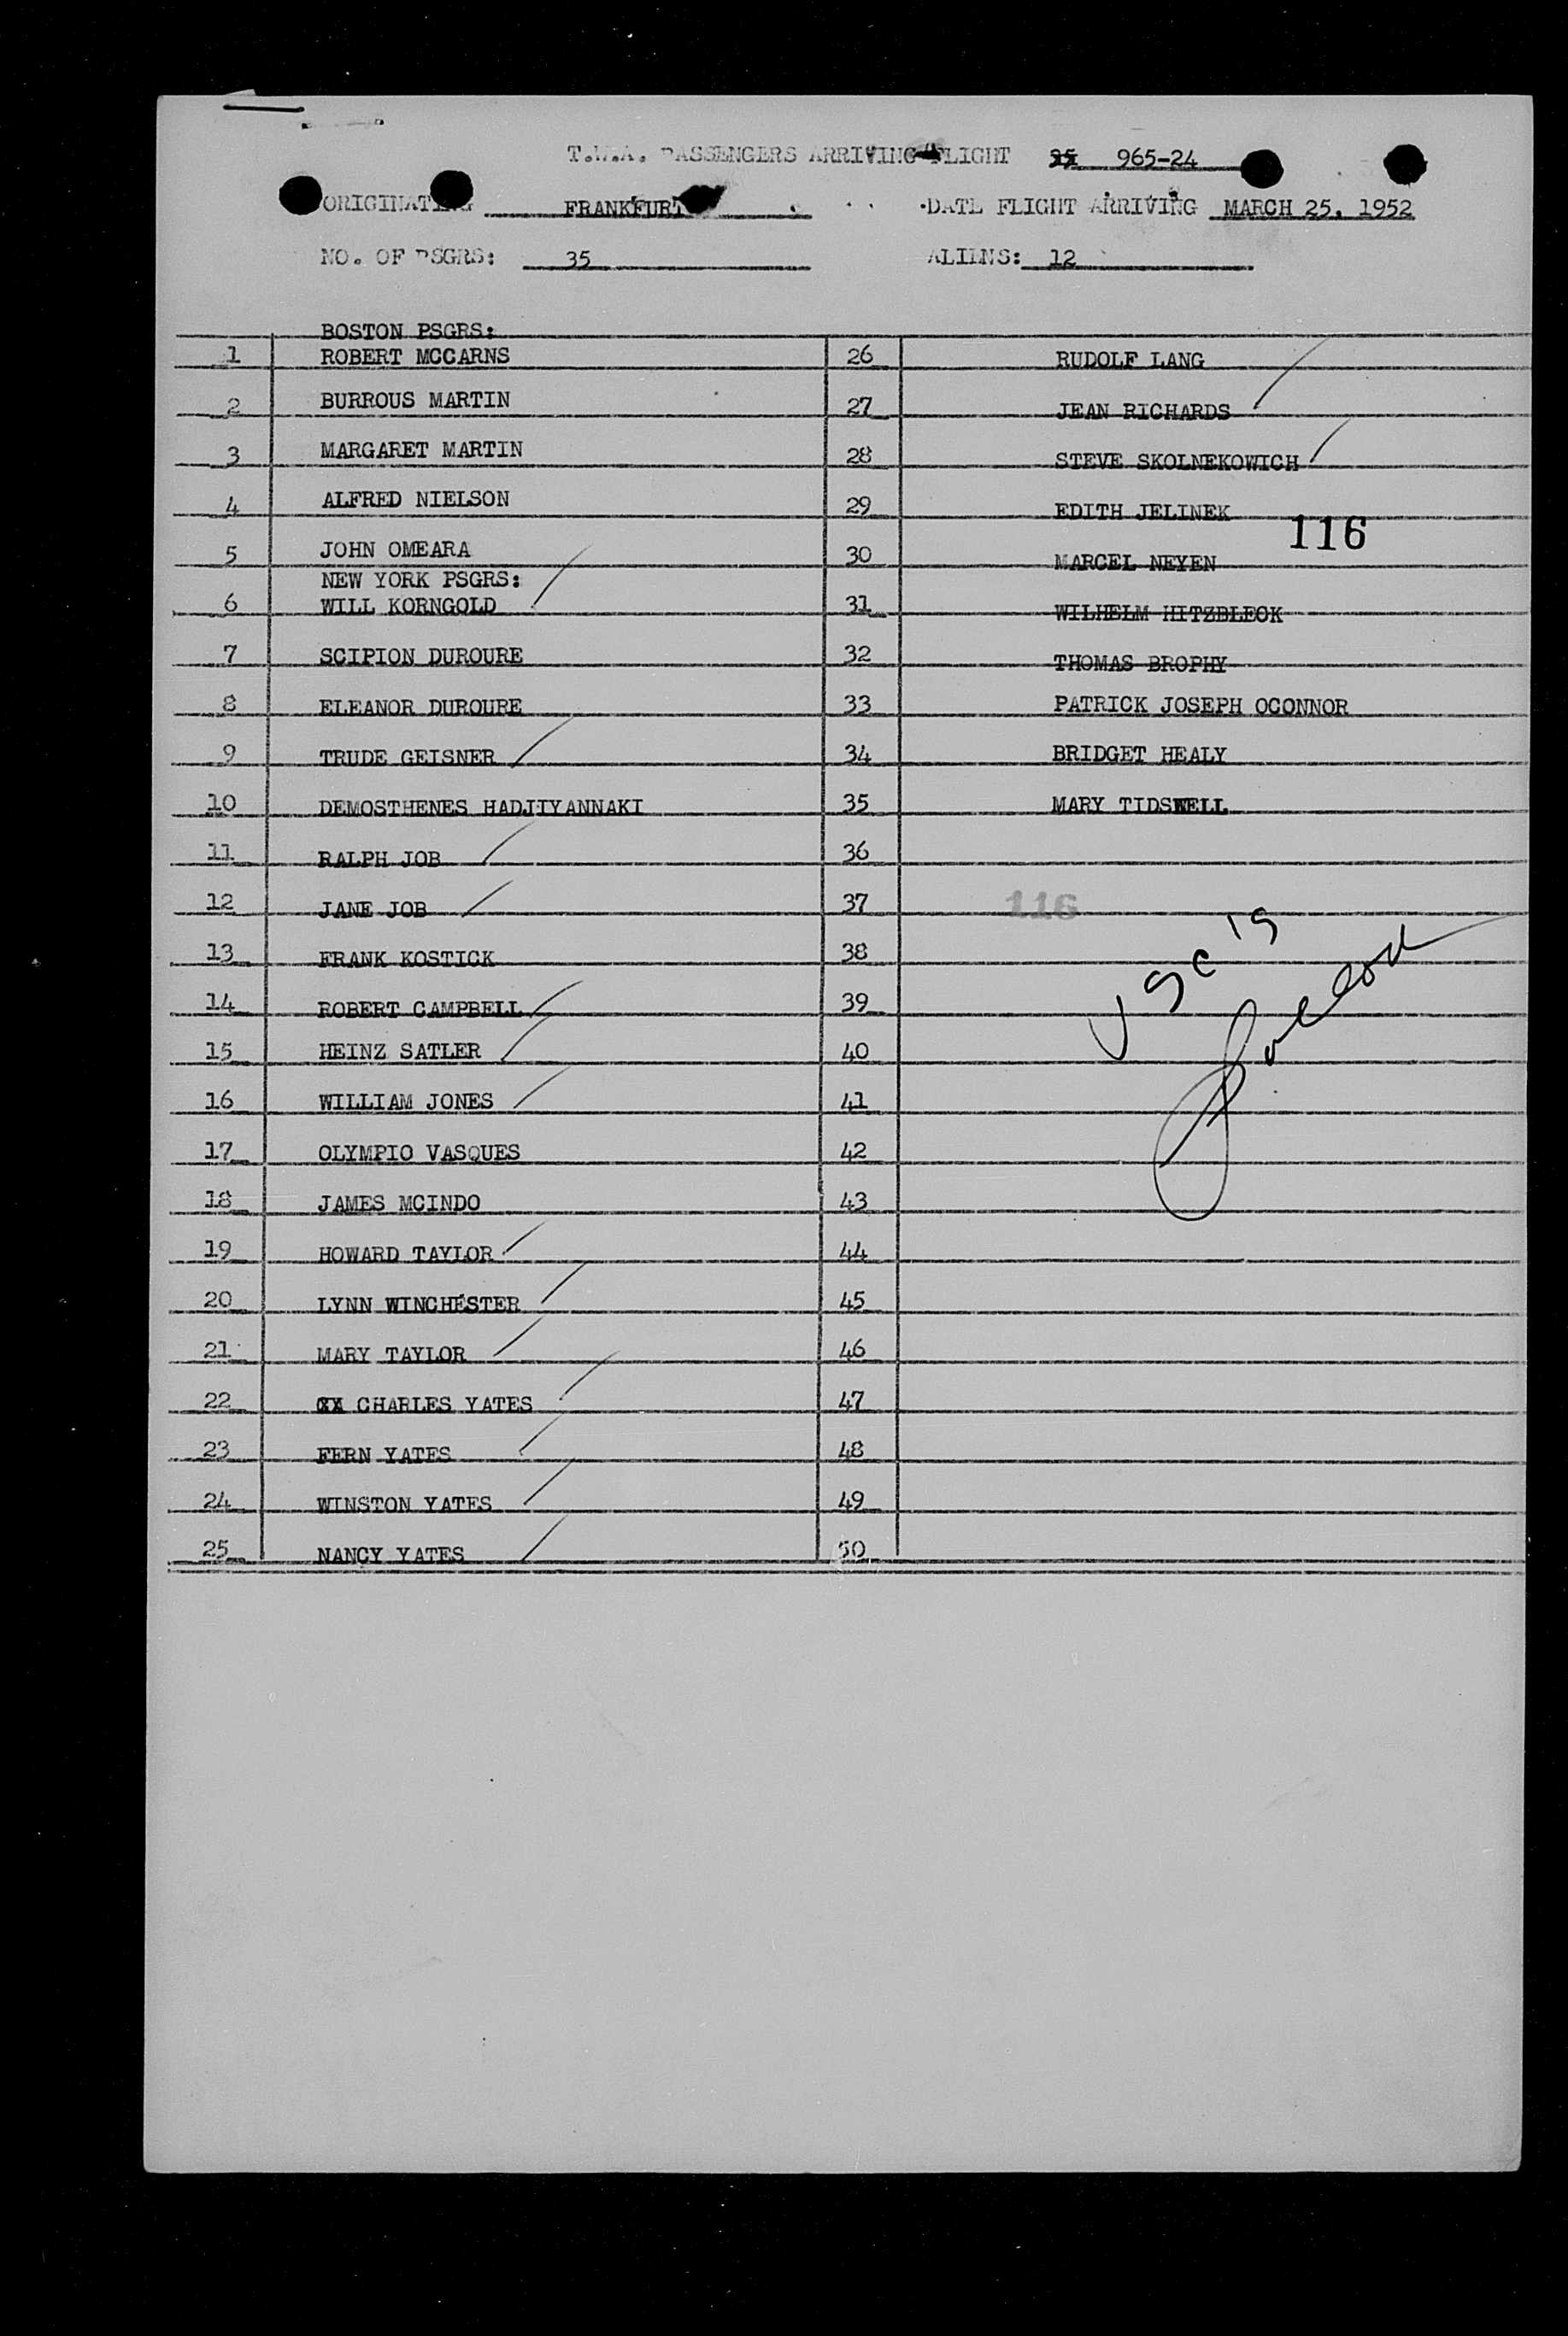 T.W.A. PASSENGERS ARRIVING FLIGHT 965-24
ORIGINATING FRANKFURT DATE FLIGHT ARRIVING MARCH 25, 1952
NO. OF PSGRS: 35 ALIENS: 12
BOSTON PSGRS:
1 ROBERT MCCARNS 26 RUDOLF LANG
2 BURROUS MARTIN 27 JEAN RICHARDS
3 MARGARET MARTIN 28 STEVE SKOLNEKOWICH
4 ALFRED NIELSON 29 EDITH JELINEK
116
5 JOHN OMEARA 30 MARCEL NEYEN
NEW YORK PSGRS:
6 WILL KORNGOLD 31 WILHELM HITZBLECK
7 SCIPION DUROURE 32 THOMAS BROPHY
8 ELEANOR DUROURE 33 PATRICK JOSEPH OCONNOR
9 TRUDE GEISNER 34 BRIDGET HEALY
10 DEMOSTHENES HADJIYANNAKI 35 MARY TIDSWELL
11 RALPH JOB 36
12 JANE JOB 37 116
13 FRANK KOSTICK 38 USC'S
14 ROBERT CAMPBELL 39
15 HEINZ SATLER 40
16 WILLIAM JONES 41
17 OLYMPIO VASQUES 42
18 JAMES MCINDO 43
19 HOWARD TAYLOR 44
20 LYNN WINCHESTER 45
21 MARY TAYLOR 46
22 CHARLES YATES 47
23 FERN YATES 48
24 WINSTON YATES 49
25 NANCY YATES 50